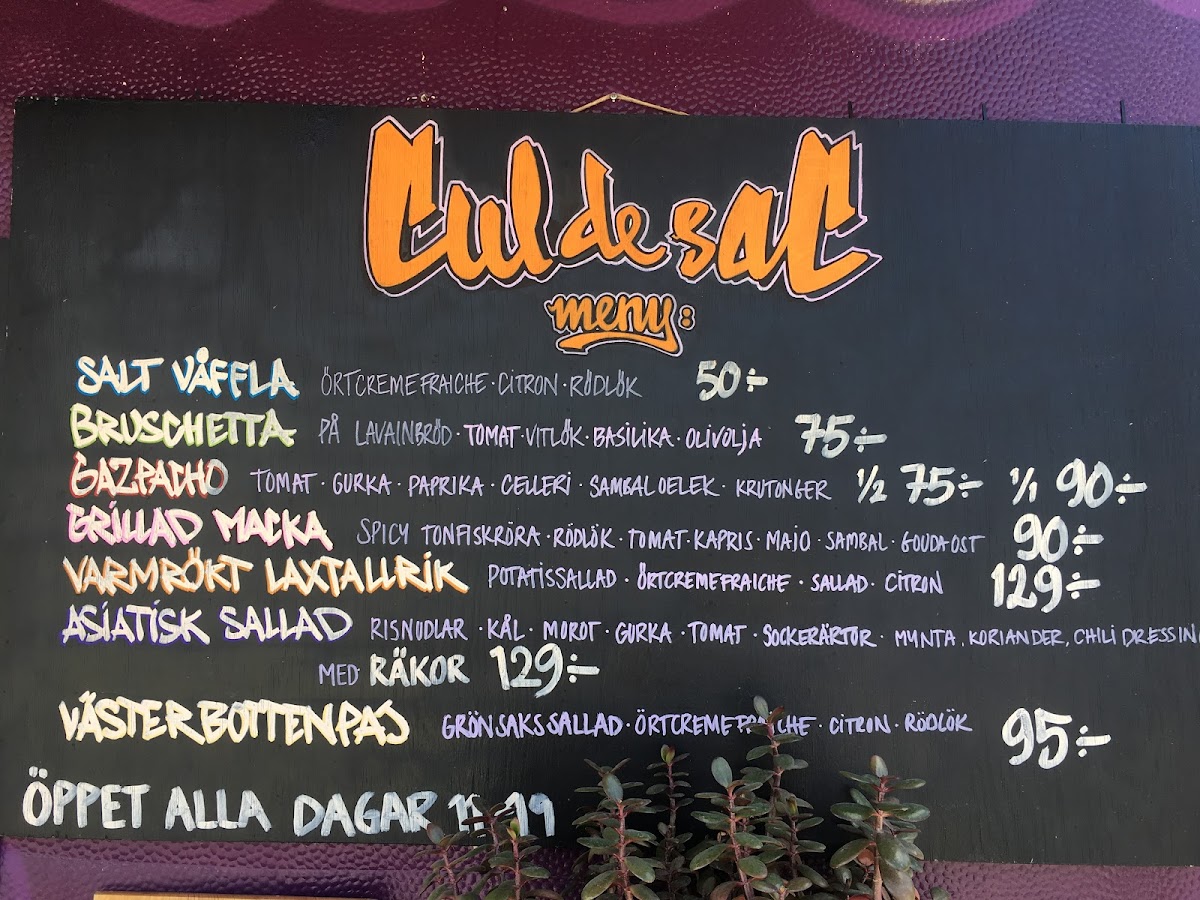 Cul de sac
meny:
SALT VÅFFLA ÖRTCREMEFRAICHE · CITRON · RÖDLÖK 50:-
BRUSCHETTA PÅ LAVAINBRÖD · TOMAT · VITLÖK · BASILIKA · OLIVOLJA 75:-
GAZPACHO TOMAT · GURKA · PAPRIKA · CELLERI · SAMBAL OELEK · KRUTONGER 1/2 75:- 1/1 90:-
GRILLAD MACKA SPICY TONFISKRÖRA · RÖDLÖK · TOMAT · KAPRIS · MAJO · SAMBAL · GOUDAOST 90:-
VARMRÖKT LAXTALLRIK POTATISSALLAD · ÖRTCREMEFRAICHE · SALLAD · CITRON 129:-
ASIATISK SALLAD RISNUDLAR · KÅL · MOROT · GURKA · TOMAT · SOCKERÄRTOR · MYNTA, KORIANDER, CHILI DRESSIN
MED RÄKOR 129:-
VÄSTERBOTTENPAJ GRÖNSAKSSALLAD · ÖRTCREMEFRAICHE · CITRON · RÖDLÖK 95:-
ÖPPET ALLA DAGAR 19